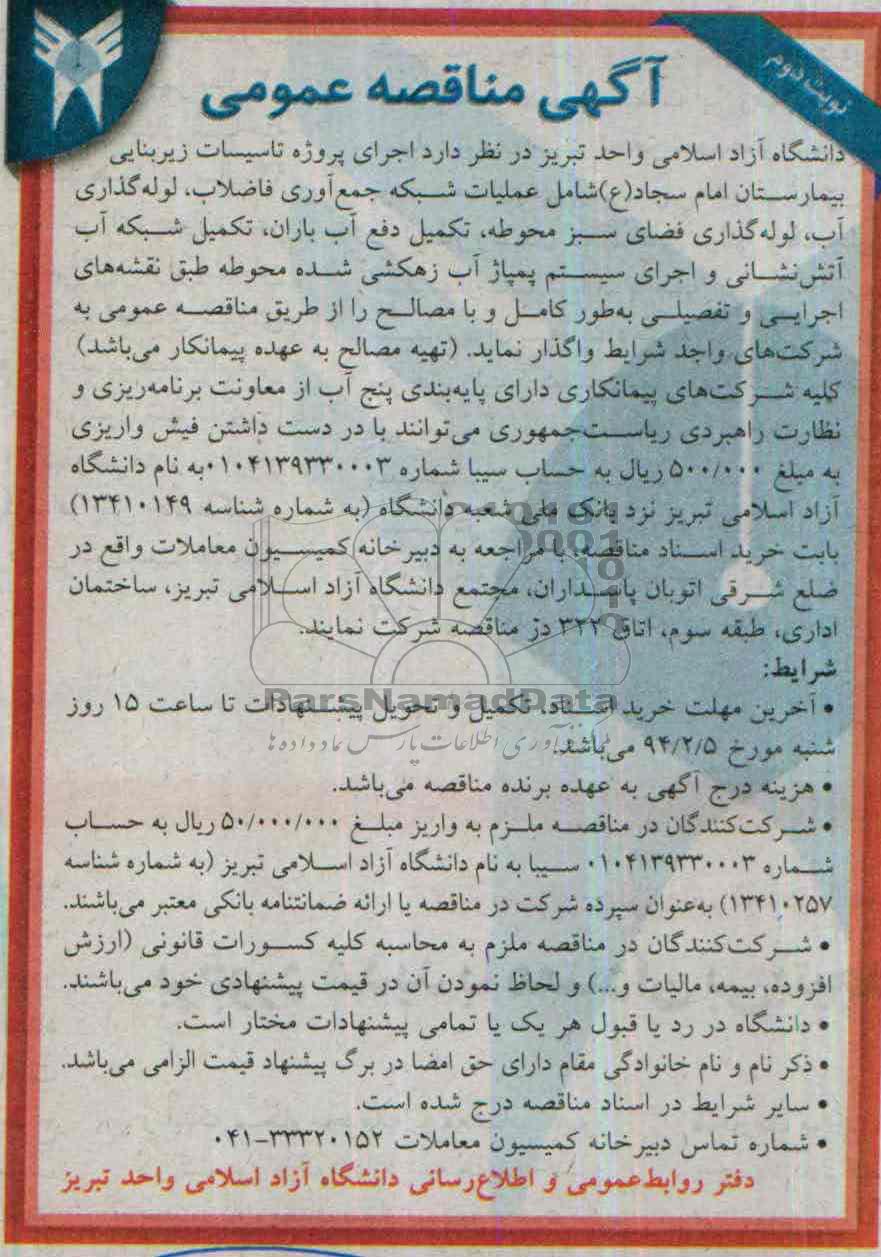 نوبت دوم
آگهی مناقصه عمومی
دانشگاه آزاد اسلامی واحد تبریز در نظر دارد اجرای پروژه تاسیسات زیربنایی
بیمارستان امام سجاد(ع)شامل عملیات شبکه جمع‌آوری فاضلاب، لوله‌گذاری
آب، لوله‌گذاری فضای سبز محوطه، تکمیل دفع آب باران، تکمیل شبکه آب
آتش‌نشانی و اجرای سیستم پمپاژ آب زهکشی شده محوطه طبق نقشه‌های
اجرایی و تفصیلی به‌طور کامل و با مصالح را از طریق مناقصه عمومی به
شرکت‌های واجد شرایط واگذار نماید. (تهیه مصالح به عهده پیمانکار می‌باشد)
کلیه شرکت‌های پیمانکاری دارای پایه‌بندی پنج آب از معاونت برنامه‌ریزی و
نظارت راهبردی ریاست‌جمهوری می‌توانند با در دست داشتن فیش واریزی
به مبلغ ۵۰۰/۰۰۰ ریال به حساب سیبا شماره ۰۱۰۴۱۳۹۳۳۰۰۰۳ به نام دانشگاه
آزاد اسلامی تبریز نزد بانک ملی شعبه دانشگاه (به شماره شناسه ۱۳۴۱۰۱۴۹)
بابت خرید اسناد مناقصه، با مراجعه به دبیرخانه کمیسیون معاملات واقع در
ضلع شرقی اتوبان پاسداران، مجتمع دانشگاه آزاد اسلامی تبریز، ساختمان
اداری، طبقه سوم، اتاق ۳۲۲ در مناقصه شرکت نمایند.
شرایط:
• آخرین مهلت خرید اسناد، تکمیل و تحویل پیشنهادات تا ساعت ۱۵ روز
شنبه مورخ ۹۴/۲/۵ می‌باشد.
• هزینه درج آگهی به عهده برنده مناقصه می‌باشد.
• شرکت‌کنندگان در مناقصه ملزم به واریز مبلغ ۵۰/۰۰۰/۰۰۰ ریال به حساب
شماره ۰۱۰۴۱۳۹۳۳۰۰۰۳ سیبا به نام دانشگاه آزاد اسلامی تبریز (به شماره شناسه
۱۳۴۱۰۲۵۷) به‌عنوان سپرده شرکت در مناقصه یا ارائه ضمانتنامه بانکی معتبر می‌باشند.
• شرکت‌کنندگان در مناقصه ملزم به محاسبه کلیه کسورات قانونی (ارزش
افزوده، بیمه، مالیات و...) و لحاظ نمودن آن در قیمت پیشنهادی خود می‌باشند.
• دانشگاه در رد یا قبول هر یک یا تمامی پیشنهادات مختار است.
• ذکر نام و نام خانوادگی مقام دارای حق امضا در برگ پیشنهاد قیمت الزامی می‌باشد.
• سایر شرایط در اسناد مناقصه درج شده است.
• شماره تماس دبیرخانه کمیسیون معاملات ۳۳۳۲۰۱۵۲-۰۴۱
دفتر روابط‌عمومی و اطلاع‌رسانی دانشگاه آزاد اسلامی واحد تبریز
ParsNamadData